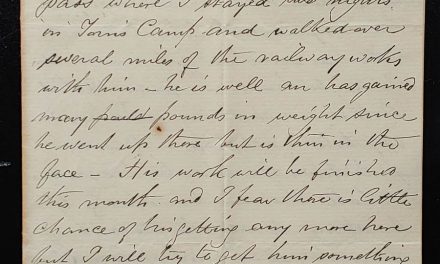 pass where I stayed two nights
in Tom's Camp and walked over
several miles of the railway works
with him – he is well an has gained
many pound pounds in weight since
he went up there but is thin in the
face – His work will be finished
this month and I fear there is little
chance of his getting any more here
but I will try to get him something